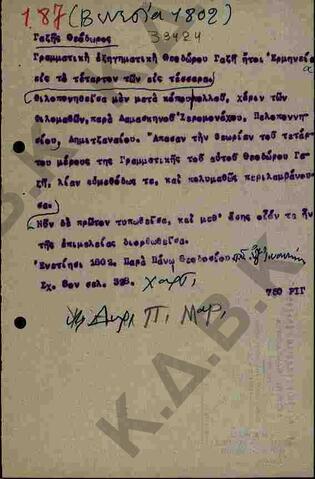 187 (Βενετία 1802)
33424
Γαζής Θεόδωρος
Γραμματική εξηγηματική Θεοδώρου Γαζή ήτοι Ερμηνεία
εις το τέταρτον των εις τέσσαρα
Φιλοπονηθείσα μεν μετά κόπου πολλού, χάριν των
Φιλομαθών, παρά Δαμασκηνού Ιερομονάχου, Πελοποννη-
σίου, Δημιτζαναίου. Άπασαν την θεωρίαν του τετάρ-
του μέρους της Γραμματικής του αυτού Θεοδώρου Γα-
ζή, λίαν ευμεθόδως τε, και πολυμαθώς περιλαμβάνου-
σα.
Νυν δε πρώτον τυπωθείσα, και μεθ' όσης οίόν τε ην
της επιμελείας διορθωθείσα.
Ενετίησι 1802. Παρά Πάνω Θεοδοσίου
Σχ. 8ον σελ. 328. Χαρτ.
780 ΡΙΓ
Π. Μαρ.
Κ.Δ.Β.Κ